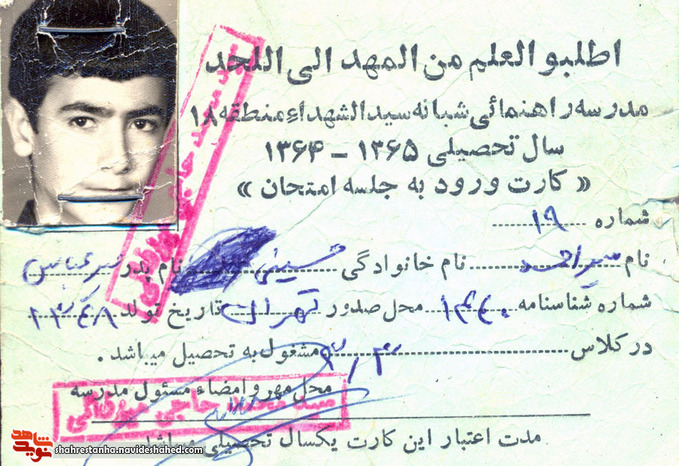 اطلبو العلم من المهد الی اللحد
مدرسه راهنمائی شبانه سیدالشهداء منطقه ۱۸
سال تحصیلی ۱۳۶۵ – ۱۳۶۴
« کارت ورود به جلسه امتحان »
شماره ۱۹
نام سید احمد نام خانوادگی حسینی نام پدر میرعباس
شماره شناسنامه محل صدور تهران تاریخ تولد
در کلاس مشغول به تحصیل میباشد .
محل مهر و امضاء مسئول مدرسه
سید محمد حاجی میر
مدت اعتبار این کارت یکسال تحصیلی میباشد
شاهد
نوید
shahrestanha.navideshahed.com